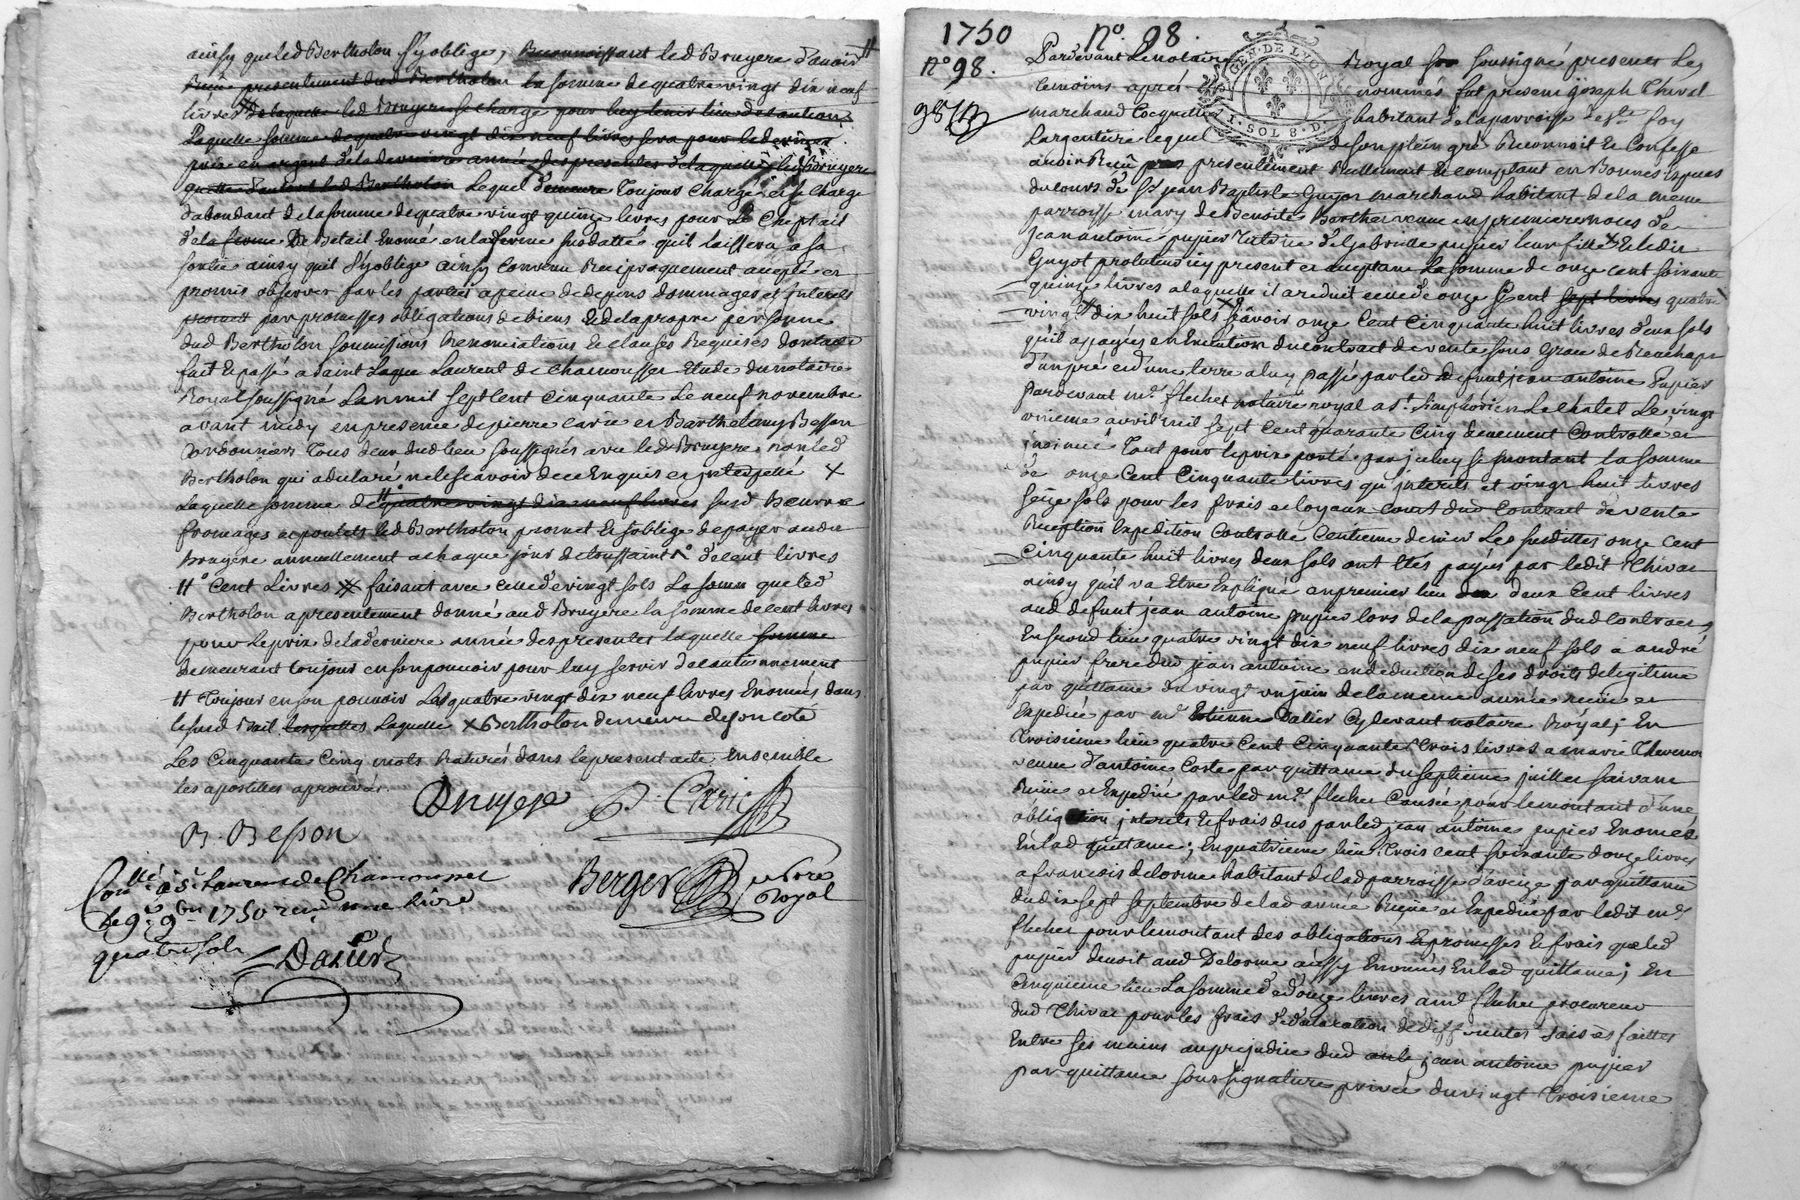 ainsy que led Bertholon s'y oblige, Reconnoissant led Bruyere d'avoir #
Reçu presentement dud Bertholon la somme de quatre vingt dix neuf
livres de laquelle led Bruyere se charge pour luy tenir lieu de caution
Laquelle somme de quatre vingt dix neuf livres sera pour le dernier
prix en argent de la derniere année des presentes de laquelle led Bruyere
quitte led Bertholon Lequel demeure Toujours chargé et se charge
d'abondant de la somme de quatre vingt quinze livres pour Le Cheptail
de la ferme De Betail Enomé en lad ferme susdattée qu'il laissera a sa
sortie ainsy qu'il s'y oblige ainsy Convenu Reciproquement accepté et
promis observer par les parties a peine de depens dommages et Interets
promett par promesses obligations de biens Et de la propre personne
dud Bertholon soumissions Renonciations Et clauses Requises dont acte
fait Et passé a Saint Laurent de chamousset Etude du notaire
Royal soussigné L'an mil sept cent cinquante Le neuf novembre
avant midy en presence de pierre Carie et Barthelemy Besson
Cordonniers Tous deux dud lieu soussignés avec led Bruyere non led
Bertholon qui a declaré ne le scavoir de ce Enquis et interpellé X
Laquelle somme de quatre vingt dix neuf livres susd Beurre
fromages et poulets led Bertholon promet Et s'oblige de payer aud
Bruyere annuellement a chaque jour de toussaint d'e cent livres
# Cent Livres X faisant avec celle de vingt sols La somme que led
Bertholon a presentement donné aud Bruyere la somme de cent livres
pour le prix de la derniere année des presentes laquelle somme
demeurant toujours en son pouvoir pour luy servir de cautionnement
# Toujour en son pouvoir Les quatre vingt dix neuf livres Enomées dans
lesusd Bail lesquelles Laquelle X Bertholon demeure de son coté
Les Cinquante Cinq mots Raturés dans le present acte, Ensemble
les apostilles aprouvés.
Bruyere P. Carie
B. Besson
Con.llé a St Laurent de Chamousset
Le 9e 9bre 1750 reçu une livre
quatre sols
Berger no.re
Royal
Dalier
1750 No. 98.
No 98.
GEN. DE LYON
1. SOL 8. D.
Pardevant Le notaire Royal soussigné presents Les
temoins après nommés fut present joseph Thivel
marchand habitant de la parroisse de Ste foy
Largentiere lequel de son plein gré Reconnoit Et Confesse
avoir Reçu presentement Reellement Et comptant en Bonnes Especes
du cours de Sr jean Baptiste Guyot marchand habitant de la meme
parroisse mary de Benoite Barthes veuve en premieres noces de
jean antoine pupier Tutrice de Gabrielle pupier leur fille Et ledit
Guyot protuteur icy present et acceptant La somme de onze cent soixante
quinze livres a laquelle il a reduit celle de onze Cent sept livres quatre
vingt dix huit sols scavoir onze Cent Cinquante huit livres deux sols
qu'il a payés en Execution du contrait de vente sous Grace de Reachapt
d'un pré et d'une terre a luy passé par led defunt jean antoine Pupier
Pardevant me flechet notaire royal a St Simphorien Le chatel Le vingt
avril mil sept Cent quarante Cinq deuement Controllé et
insinué Tout pour le prix porté par iceluy se montant la somme
de onze Cent Cinquante livres qu'interets et vingt huit livres
seize sols pour les frais et loyaux couts dud Contrait de vente
Reception Expedition Controlle Centieme denier Les susdittes onze cent
Cinquante huit livres deux sols ont Etés payés par ledit Thivel
ainsy qu'il va Etre Expliqué au premier lieu deux Cent livres
aud defunt jean antoine pupier lors de la passation dud Contrait,
En second lieu quatre vingt dix neuf livres dix neuf sols a andré
pupier frere dud jean antoine en deduction de ses droits de legitime
par quittance du vingt un juin de la meme année reçue et
Expediée par me Etienne Dalier Cydevant notaire Royal; En
Troisieme lieu quatre Cent Cinquante Trois livres a marie Thevenon
veuve d'antoine Coste par quittance du septieme juillet suivant
Reçue et Expediée par led me flechet Causée pour le montant d'une
obligation interets Et frais dus par led jean antoine pupier Enomée
En lad quittance; En quatrieme lieu Trois cent soixante douze livres
a francois delorme habitant de lad parroisse d'aveize par quittance
du dix sept septembre de lad année Reçue et Expediée par ledit me
flechet pour le montant des obligations Et promesses Et frais que led
pupier devoit aud Delorme aussy Enomés En lad quittance; En
Cinquieme lieu La somme de douze livres a me flechet procureur
dud Thivel pour les frais de declaration de differentes saisies faittes
Entre ses mains au prejudice dud jean antoine pupier
par quittance sous signature privée du vingt Troisieme